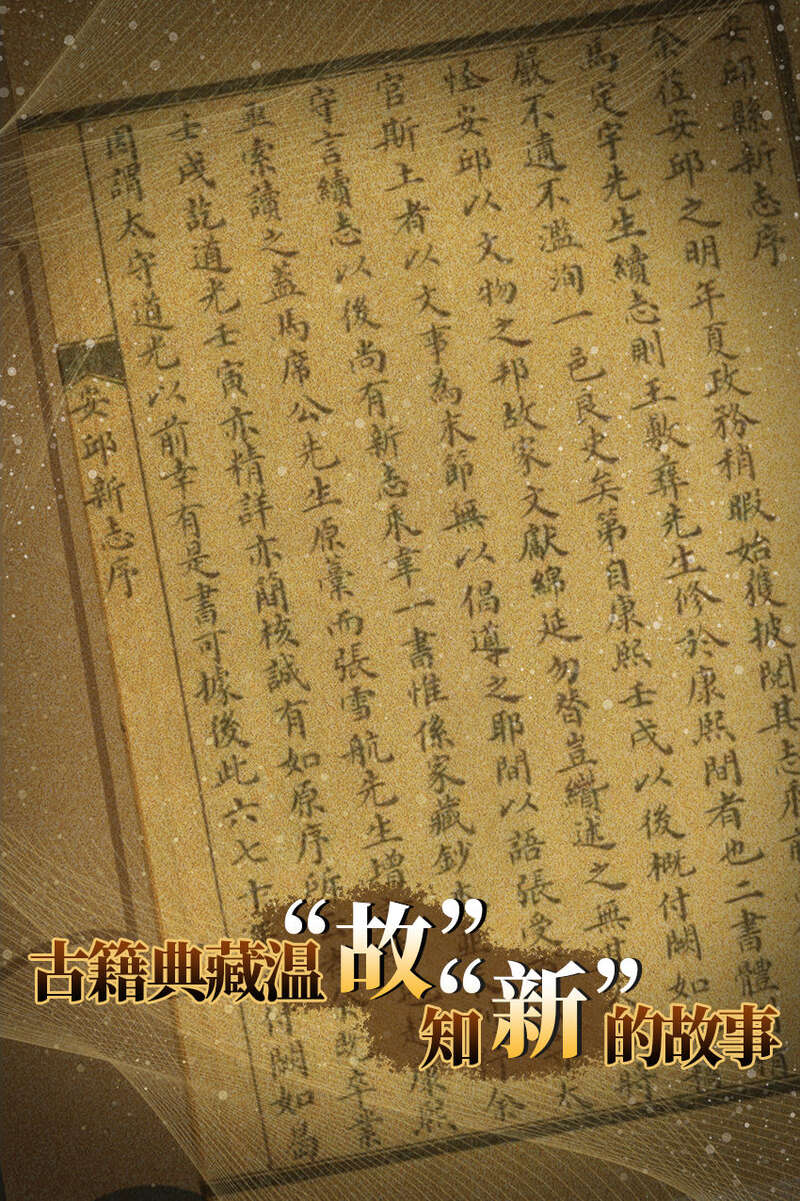 安邱縣新志序
余莅安邱之明年夏政務稍暇始獲披閱其志乘前
馬定宇先生續志則王斆彛先生修於康熙間者也二書體
嚴不遺不濫洵一邑良史矣第自康熙壬戌以後概付闕如
怪安邱以文物之邦故家文獻綿延勿替豈纘述之無
官斯土者以文事為末節無以倡導之耶間以語張受
守言續志以後尚有新志乘韋一書惟係家藏鈔本
亟索讀之蓋馬席公先生原藁而張雪航先生增
壬戌訖道光壬寅亦精詳亦簡核誠有如原序所
因謂太守道光以前幸有是書可據後此六七十
安邱新志序
康熙
卒業
付闕如焉
古籍典藏温“故”
知“新”的故事